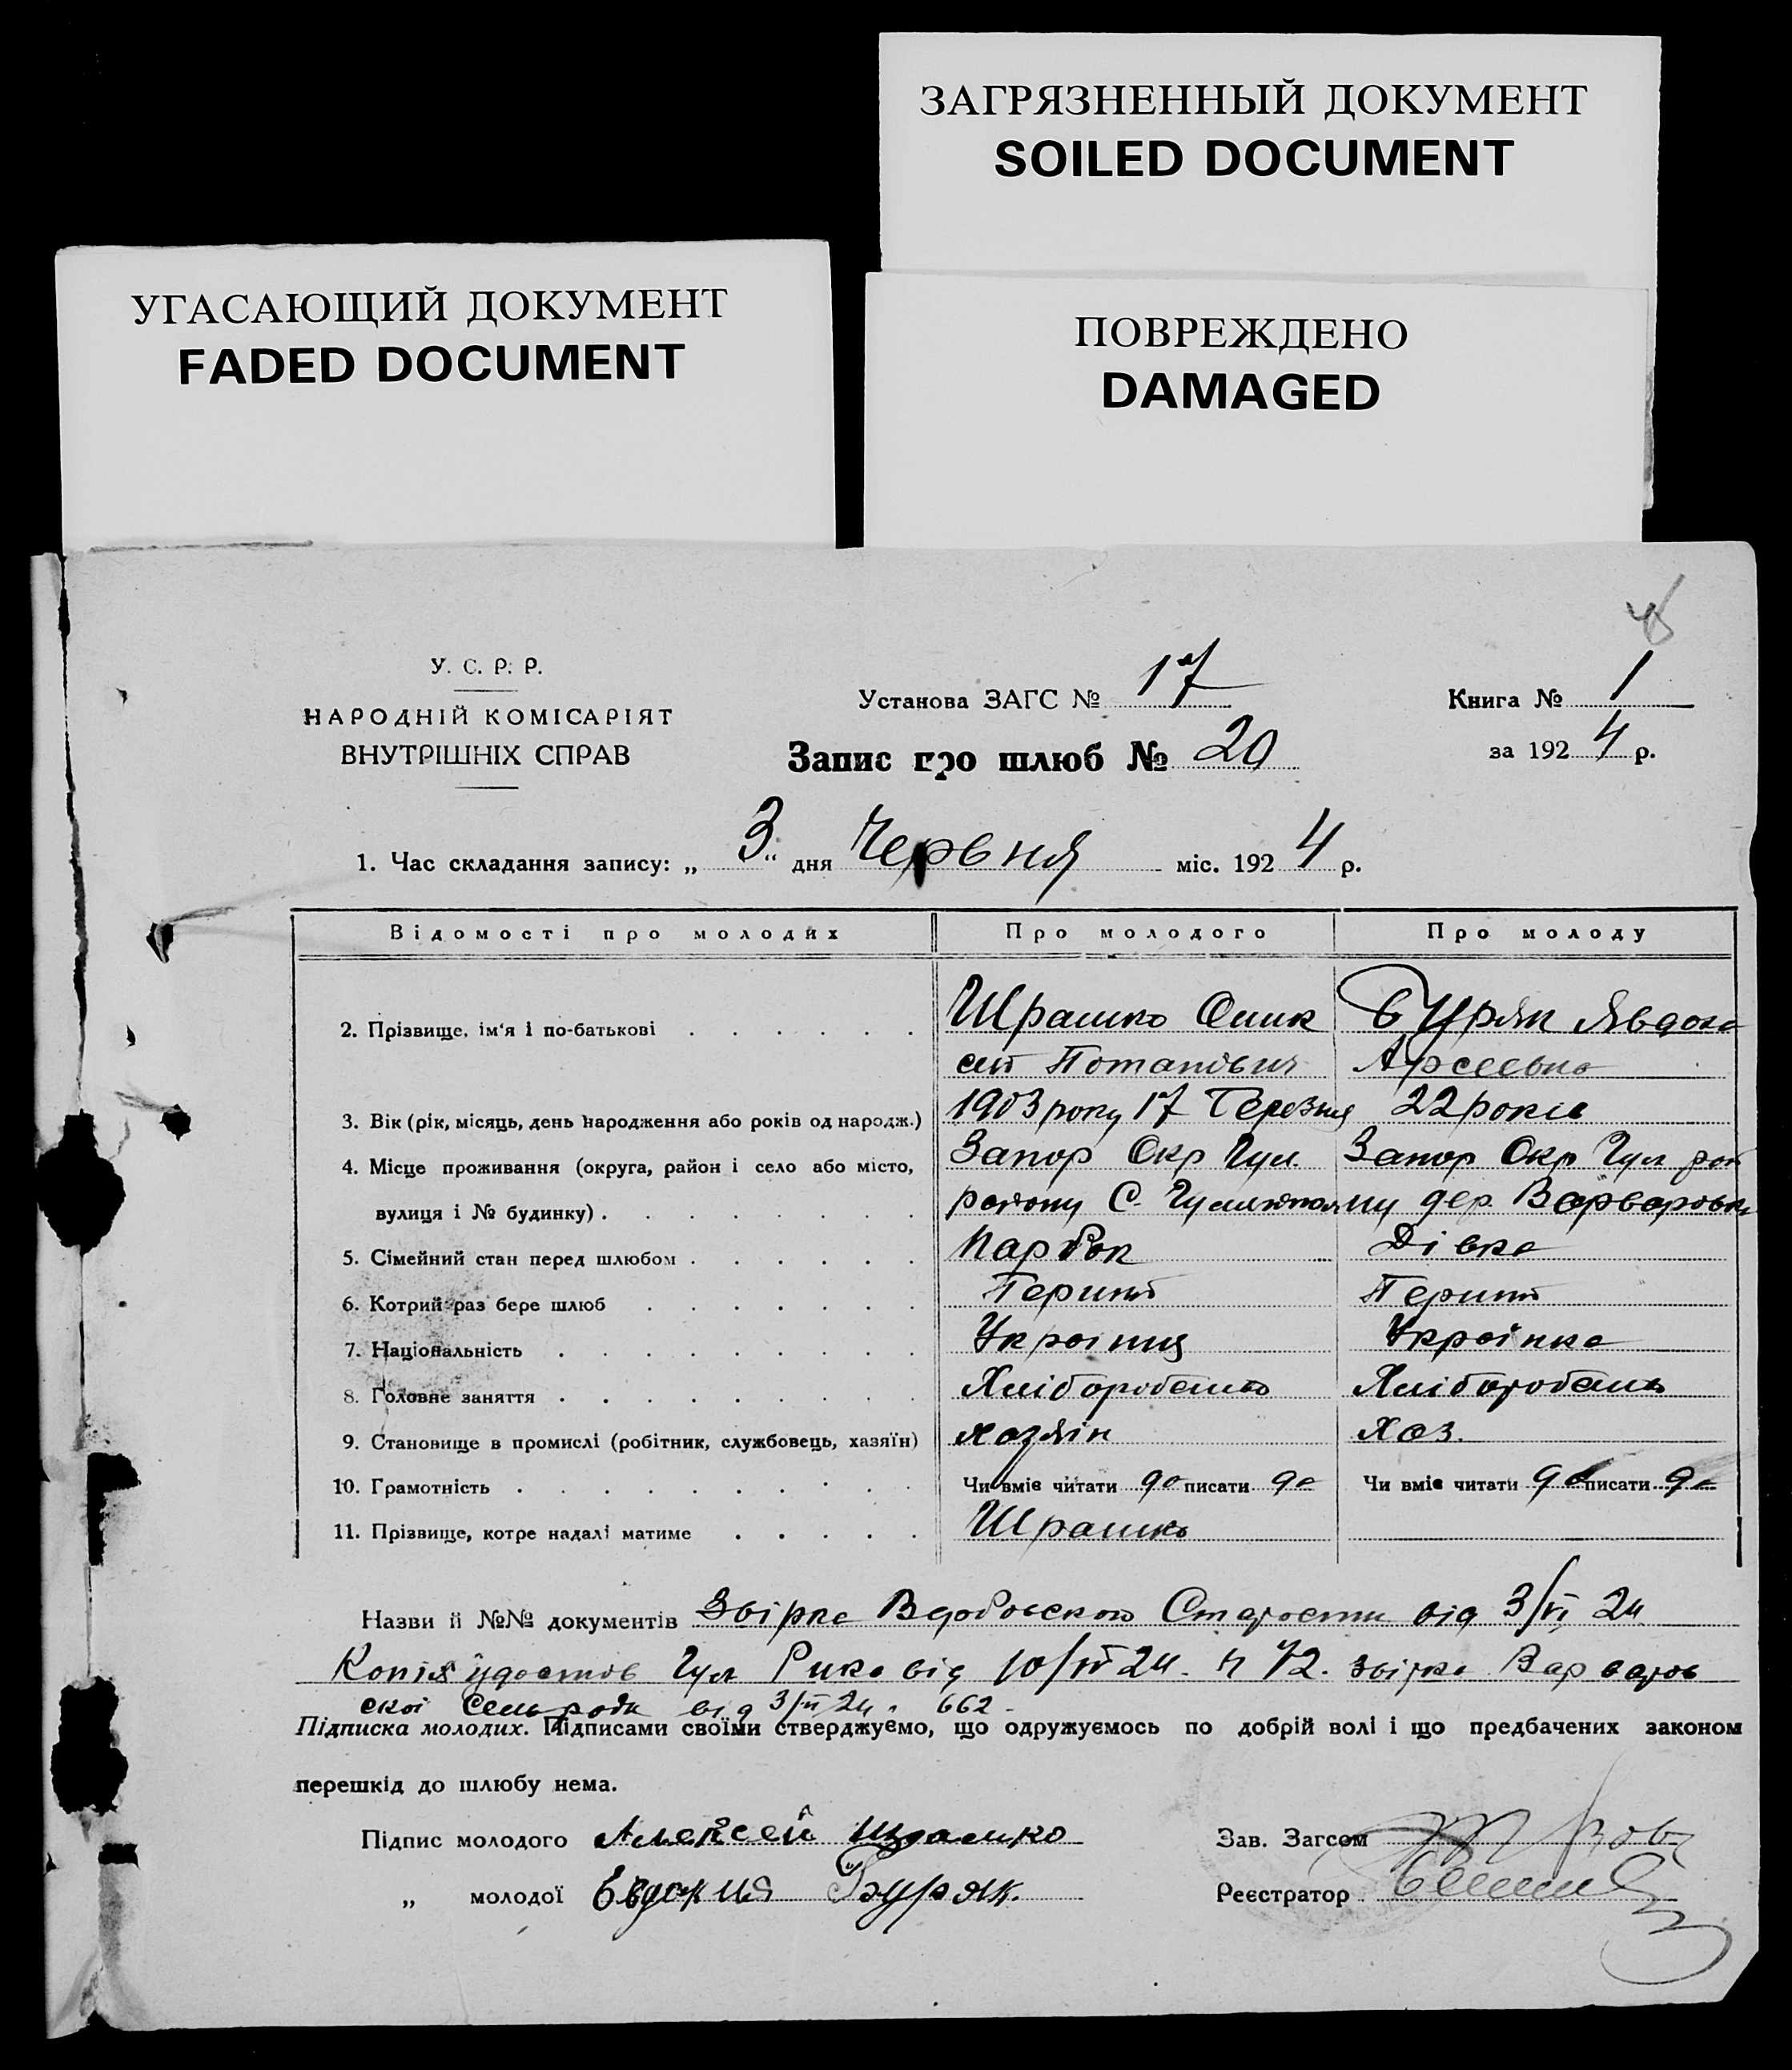 ЗАГРЯЗНЕННЫЙ ДОКУМЕНТ
SOILED DOCUMENT
УГАСАЮЩИЙ ДОКУМЕНТ
FADED DOCUMENT
ПОВРЕЖДЕНО
DAMAGED
У. С. Р. Р.
НАРОДНІЙ КОМІСАРІЯТ
ВНУТРІШНІХ СПРАВ
Установа ЗАГС № 17
Книга № 1
Запис про шлюб № 20
за 1924 р.
1. Час складання запису: „ 3 “ дня Червня міс. 1924 р.
Відомості про молодих Про молодого Про молоду
2. Прізвище, ім'я і по-батькові Шрамко Олик Буряк Явдоха
сей Потапович
3. Вік (рік, місяць, день народження або років од народж.) 1903 року 17 Березня 22 років
4. Місце проживання (округа, район і село або місто, Запор Окр Гул. Запор Окр Гул рай
вулиця і № будинку) району С. дер. Варваровка
5. Сімейний стан перед шлюбом Парубок Дівка
6. Котрий раз бере шлюб Перший Перший
7. Національність Українець Українка
8. Головне заняття Хліборобство Хліборобство
9. Становище в промислі (робітник, службовець, хазяїн) хозяін Хоз.
10. Грамотність Чи вміє читати да писати да Чи вміє читати да писати да
11. Прізвище, котре надалі матиме Шрамко
Назви й №№ документів Звірка від 3/VI 24
Копія Гул Рика від 24. звірка Варваров
ської від 24 662
Підписка молодих. Підписами своїми стверджуємо, що одружуємось по добрій волі і що предбачених законом
перешкід до шлюбу нема.
Підпис молодого Алексей Шрамко
Зав. Загсом
„ молодої Евдокия Буряк.
Реєстратор